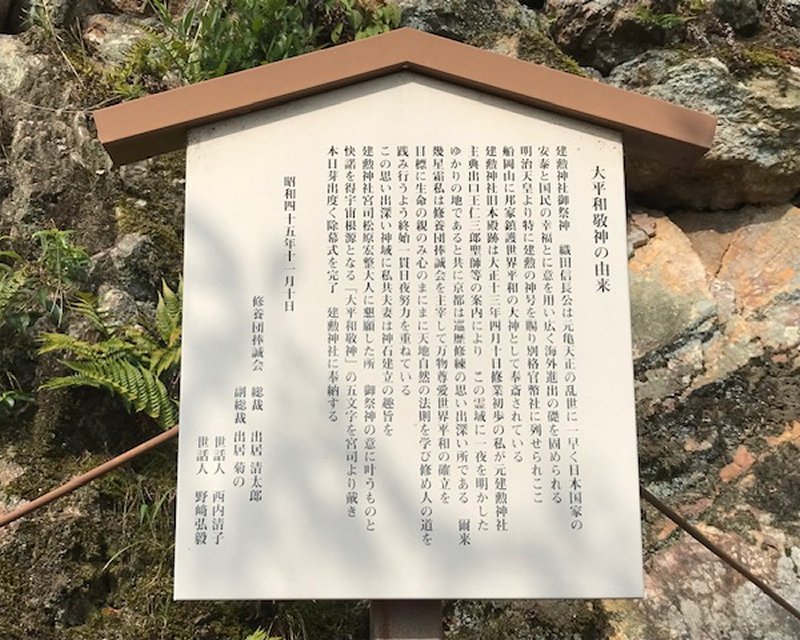 大平和敬神の由来
建勲神社御祭神　織田信長公は元亀天正の乱世に一早く日本国家の
安泰と国民の幸福とに意を用い広く海外進出の礎を固められる
明治天皇より特に建勲の神号を賜り別格官幣社に列せられここ
船岡山に邦家鎮護世界平和の大神として奉斎されている
建勲神社旧本殿跡は大正十三年四月十日修業初歩の私が元建勲神社
主典出口王仁三郎聖師等の案内により　この霊域に一夜を明かした
ゆかりの地であると共に京都は巡歴修練の思い出深い所である　爾来
幾星霜私は修養団捧誠会を主宰して万物尊愛世界平和の確立を
目標に生命の親のみ心のまにまに天地自然の法則を学び修め人の道を
践み行うよう終始一貫日夜努力を重ねている
この思い出深い神域に私共夫妻は神石建立の趣旨を
建勲神社宮司松原宏整大人に懇願した所　御祭神の意に叶うものと
快諾を得宇宙根源となる「大平和敬神」の五文字を宮司より戴き
本日芽出度く除幕式を完了　建勲神社に奉納する
昭和四十五年十一月十日
修養団捧誠会　総裁　出居　清太郎
副総裁　出居　菊の
世話人　西内清子
世話人　野﨑弘毅